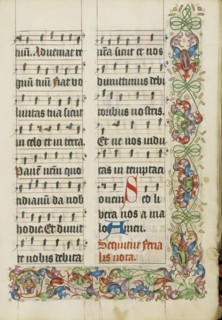 tuū. Adueniat re
gnū tuū fiat vo
luntas tua sicut
in celo et in terra
Panē nrm̄ quo
tidianū da nob
hodie Et dimit
te nobis debita
nr̄a sicut et nos
dimittimus debi
toribus nr̄is.
Et ne nos indu
cas in temptaci
onem Sed li
bera nos a ma
lo Amen.
Sequitur feria
lis nota.